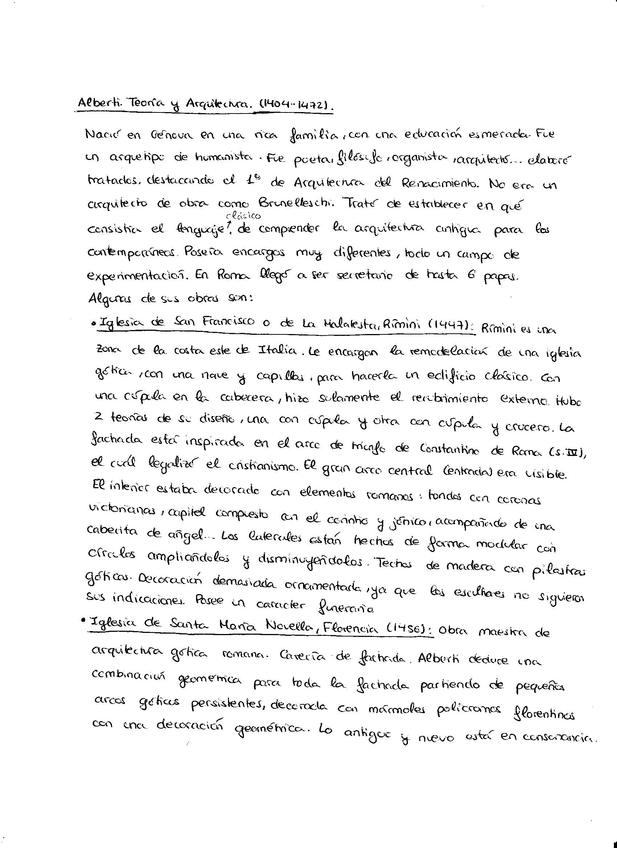 Alberti. Teoría y Arquitectura. (1404-1472).
Nació en Génova en una rica familia, con una educación esmerada. Fue
un arquetipo de humanista. Fue poeta, filósofo, organista, arquitecto... elaboró
tratados, destacando el 1º de Arquitectura del Renacimiento. No era un
arquitecto de obra como Brunelleschi. Trató de establecer en qué
clásico
consistía el lenguaje, de comprender la arquitectura antigua para los
contemporáneos. Poseía encargos muy diferentes, todo un campo de
experimentación. En Roma llegó a ser secretario de hasta 6 papas.
Algunas de sus obras son:
• Iglesia de San Francisco o de La Malatesta, Rímini (1447): Rímini es una
zona de la costa este de Italia. Le encargan la remodelación de una iglesia
gótica, con una nave y capillas, para hacerla un edificio clásico. Con
una cúpula en la cabecera, hizo solamente el recubrimiento externo. Hubo
2 teorías de su diseño, una con cúpula y otra con cúpula y crucero. La
fachada está inspirada en el arco de triunfo de Constantino de Roma (s. IV),
el cuál legalizó el cristianismo. El gran arco central (entrada) era visible.
El interior estaba decorado con elementos romanos: tondos con coronas
victorianas, capitel compuesto con el corintio y jónico, acompañado de una
cabecita de ángel... Los laterales están hechos de forma modular con
círculos ampliándolos y disminuyéndolos. Techos de madera con pilastras
góticas. Decoración demasiada ornamentada, ya que los escultores no siguieron
sus indicaciones. Posee un caracter funerario
• Iglesia de Santa María Novella, Florencia (1456): Obra maestra de
arquitectura gótica romana. Carecía de fachada. Alberti deduce una
combinación geométrica para toda la fachada partiendo de pequeños
arcos góticos persistentes, decorada con mármoles policromos florentinos
con una decoración geométrica. Lo antiguo y nuevo está en consonancia.